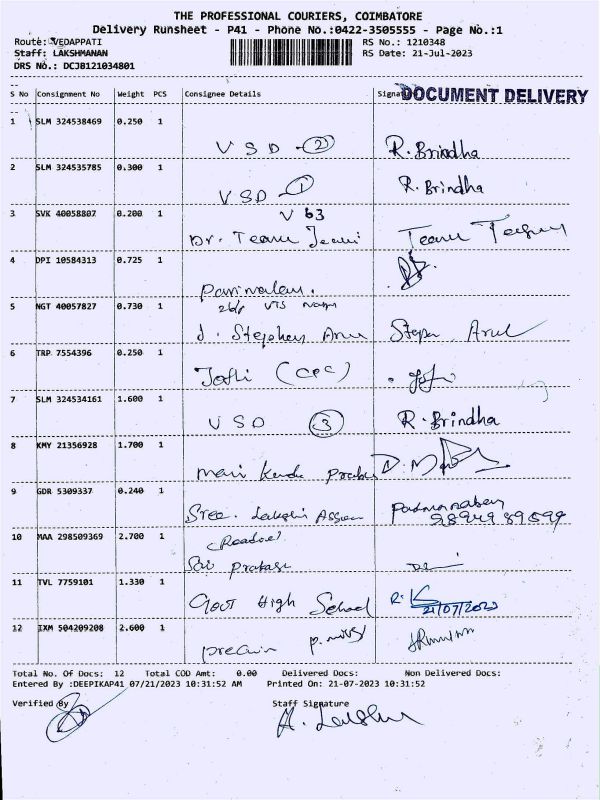 THE PROFESSIONAL COURIERS, COIMBATORE
Delivery Runsheet - P41 - Phone No.:0422-3505555 - Page No.:1
Route: VEDAPPATI RS No.: 1210348
Staff: LAKSHMANAN RS Date: 21-Jul-2023
DRS No.: DCJB121034801
S No Consignment No Weight PCS Consignee Details Signat
DOCUMENT DELIVERY
1 SLM 324538469 0.250 1
VSD - 2 R. Brindha
2 SLM 324535785 0.300 1
VSD - 1 R. Brindha
3 SVK 40058807 0.200 1 V 63
Dr. Team
4 DPI 10584313 0.725 1
5 NGT 40057827 0.730 1
J. Stephen
6 TRP 7554396 0.250 1
(CPC)
7 SLM 324534161 1.600 1
VSD 3 R. Brindha
8 KMY 21356928 1.700 1
9 GDR 5309337 0.240 1
Sree.
10 MAA 298509369 2.700 1
Sai Prakash
11 TVL 7759101 1.330 1
Govt High School 21/07/2023
12 IXM 504209208 2.600 1
Total No. Of Docs: 12 Total COD Amt: 0.00 Delivered Docs: Non Delivered Docs:
Entered By :DEEPIKAP41 07/21/2023 10:31:52 AM Printed On: 21-07-2023 10:31:52
Verified By Staff Signature